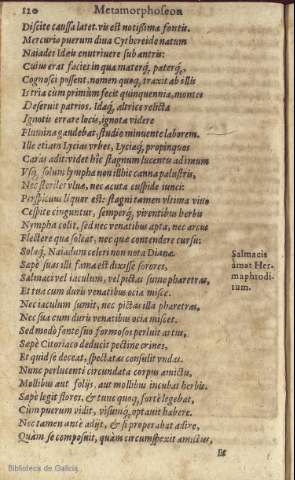 120 Metamorphoseon
Discite caussa latet. vis est notissima fontis.
Mercurio puerum diua Cythereide natum
Naiades Idæis enutriuere sub antris:
Cuius erat facies in qua materq́, paterq́,
Cognosci possent. nomen quoq, traxit ab illis
Is tria cum primùm fecit quinquennia, montes
Deseruit patrios, Idaq́, altrice relicta
Ignotis errare locis, ignota videre
Flumina gaudebat, studio minuente laborem.
Ille etiam Lycias vrbes, Lyciæq́, propinquos
Caras adit. videt hic stagnum lucentis ad imum
Vsq, solum lymphæ non illhic canna palustris,
Nec steriles vluæ, nec acuta cuspide iunci:
Perspicuus liquor est: stagni tamen vltima viuo
Cespite cinguntur, semperq́, virentibus herbis
Nympha colit, sed nec venatibus apta, nec arcus
Flectere quæ soleat, nec quæ contendere cursu:
Solaq́, Naiadum celeri non nota Dianæ.
Sæpè suas illi fama est dixisse sorores,
Salmaci vel iaculum, vel pictas sume pharetras,
Et tua cum duris venatibus ocia misce.
Nec iaculum sumit, nec pictas illa pharetras,
Nec sua cum duris venatibus ocia miscet.
Sed modò fonte suo formosos perluit artus,
Sæpè Citoriaco deducit pectine crines,
Et quid se deceat, spectatas consulit vndas.
Nunc perlucenti circundata corpus amictu,
Mollibus aut folijs, aut mollibus incubat herbis.
Sæpè legit flores, & tunc quoq, fortè legebat,
Cùm puerum vidit, visumq́, optauit habere.
Nec tamen antè adijt, & si properabat adire,
Quàm se composuit, quàm circumspexit amictus,
Et
Salmacis
amat Her-
maphrodi-
tum.
Biblioteca de Galicia